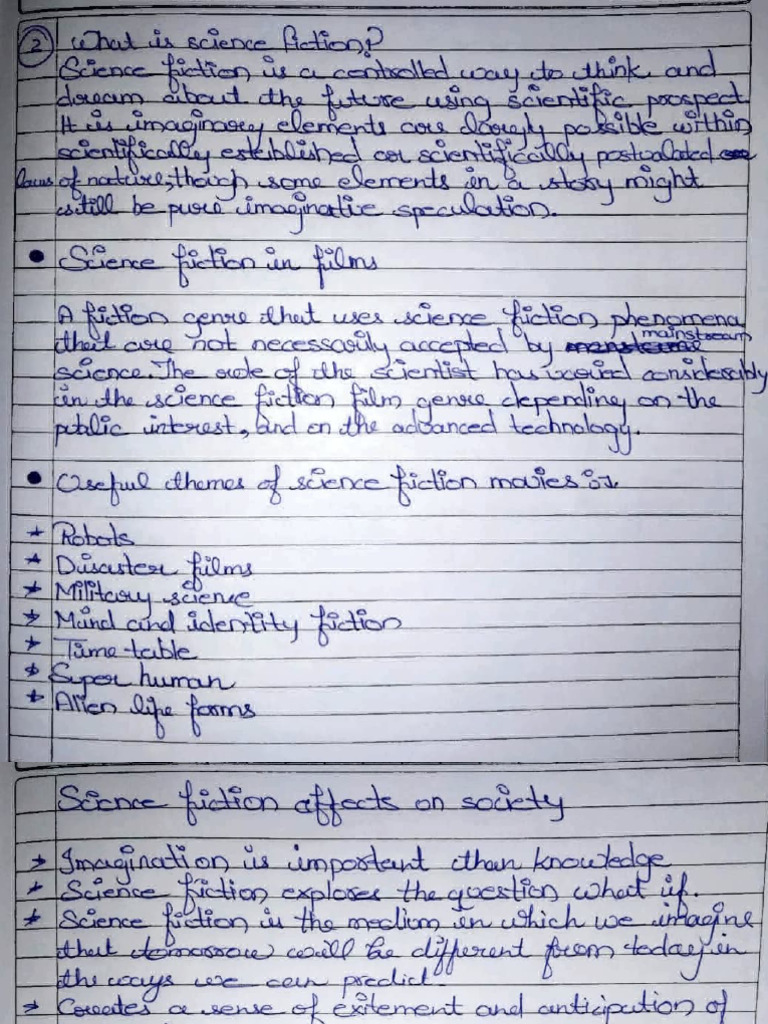 2 What is science fiction?
Science fiction is a controlled way to think and
dream about the future using scientific prospect.
It is imaginary elements are largely possible within
scientifically established or scientifically postulated
laws of nature, though some elements in a story might
still be pure imaginative speculation.
• Science fiction in films
A fiction genre that uses science fiction phenomena
that are not necessarily accepted by mainstream
science. The role of the scientist has varied considerably
in the science fiction film genre depending on the
public interest, and on the advanced technology.
• Useful themes of science fiction movies :-
* Robots
* Disaster films
* Military science
* Mind and identity fiction
* Time-table
* Super human
* Alien life forms
Science fiction affects on society
* Imagination is important than knowledge
* Science fiction explores the question what if.
* Science fiction is the medium in which we imagine
that tomorrow will be different from today in
the ways we can predict.
* Creates a sense of exitement and anticipation of